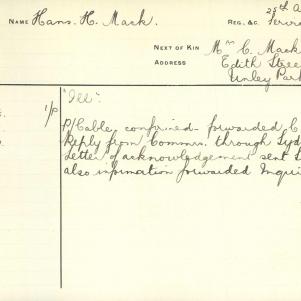 NAME Hans. H. Mack. REG. &C. 25th A
NEXT OF KIN Mrs C. Mack
ADDRESS Edith Stree
Unley Park
"Ill".
1/P P/Cable confirmed forwarded C
Reply from Commn. through Syd
Letter of acknowledgement sent
also information forwarded Inqui